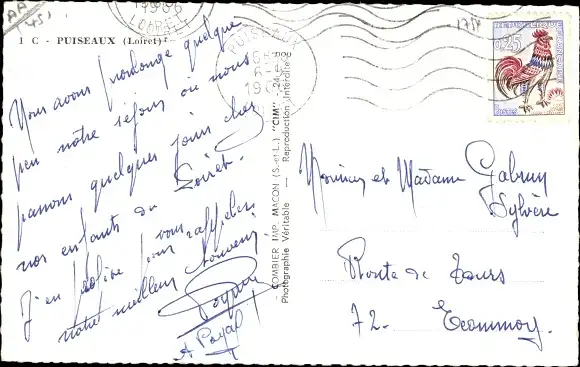 1 C - PUISEAUX (Loiret)
Nous avons prolongé quelque
peu notre séjour où nous
passons quelques jours chez
nos enfants du Loiret.
J'en profite pour vous rappeler
notre meilleur souvenir
A Poyal
LOIRET
PUISEAUX
COMBIER IMP. MACON (S.-et-L.) "CIM"
Photographie Véritable — Reproduction Interdite
0,25
Postes
Monsieur et Madame Gabrun
Sylvère
Route de Tours
72 - Ecommoy.